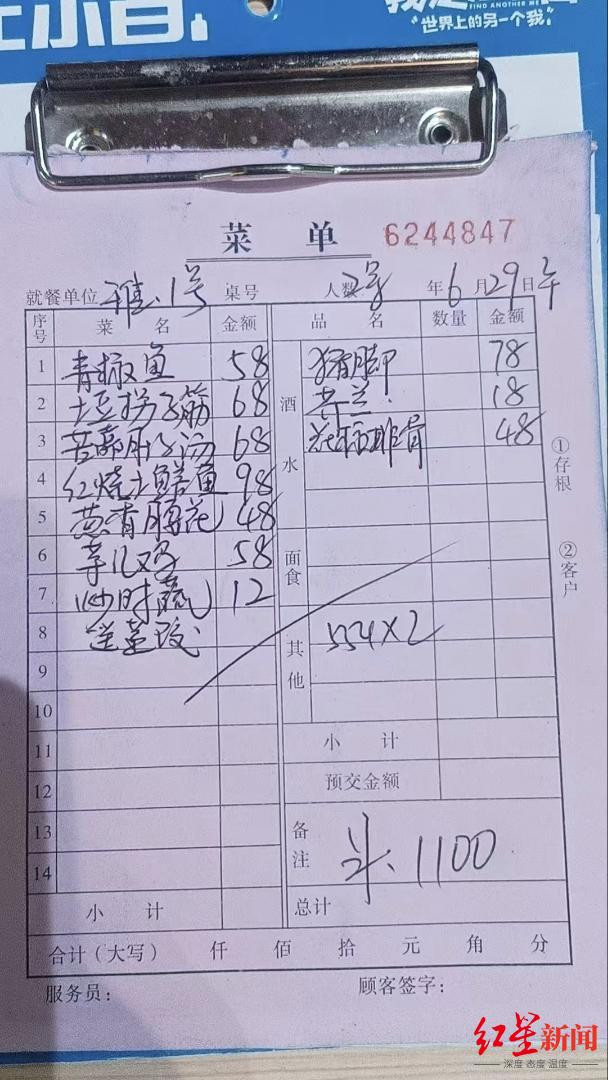 FIND ANOTHER ME
“世界上的另一个我”
菜 单 6244847
就餐单位 雅.1号 桌号 人数 2号 年 6 月 29 日 午
序号 菜 名 金额 品 名 数量 金额
1 青椒鱼 58 猪脚 78
2 土豆拐子筋 68 酒水 芥兰. 18
3 68 排骨 48
4 红烧土鳝鱼 98
5 葱香腰花 48
6 58 面食
7 炒时蔬 12
8 送 其他 554×2
9
10
11 小 计
12 预交金额
13 备注 1100
14
小 计 总计
合计（大写） 仟 佰 拾 元 角 分
服务员： 顾客签字：
①存根
②客户
红星新闻
深度 态度 温度